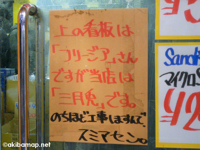 上の看板は
「フリージア」さん
ですが当店は
「三月兎」です。
のちほど工事しますんで、
スミマセン。
Sando
マイクロS
¥2
© www.akibamap.net